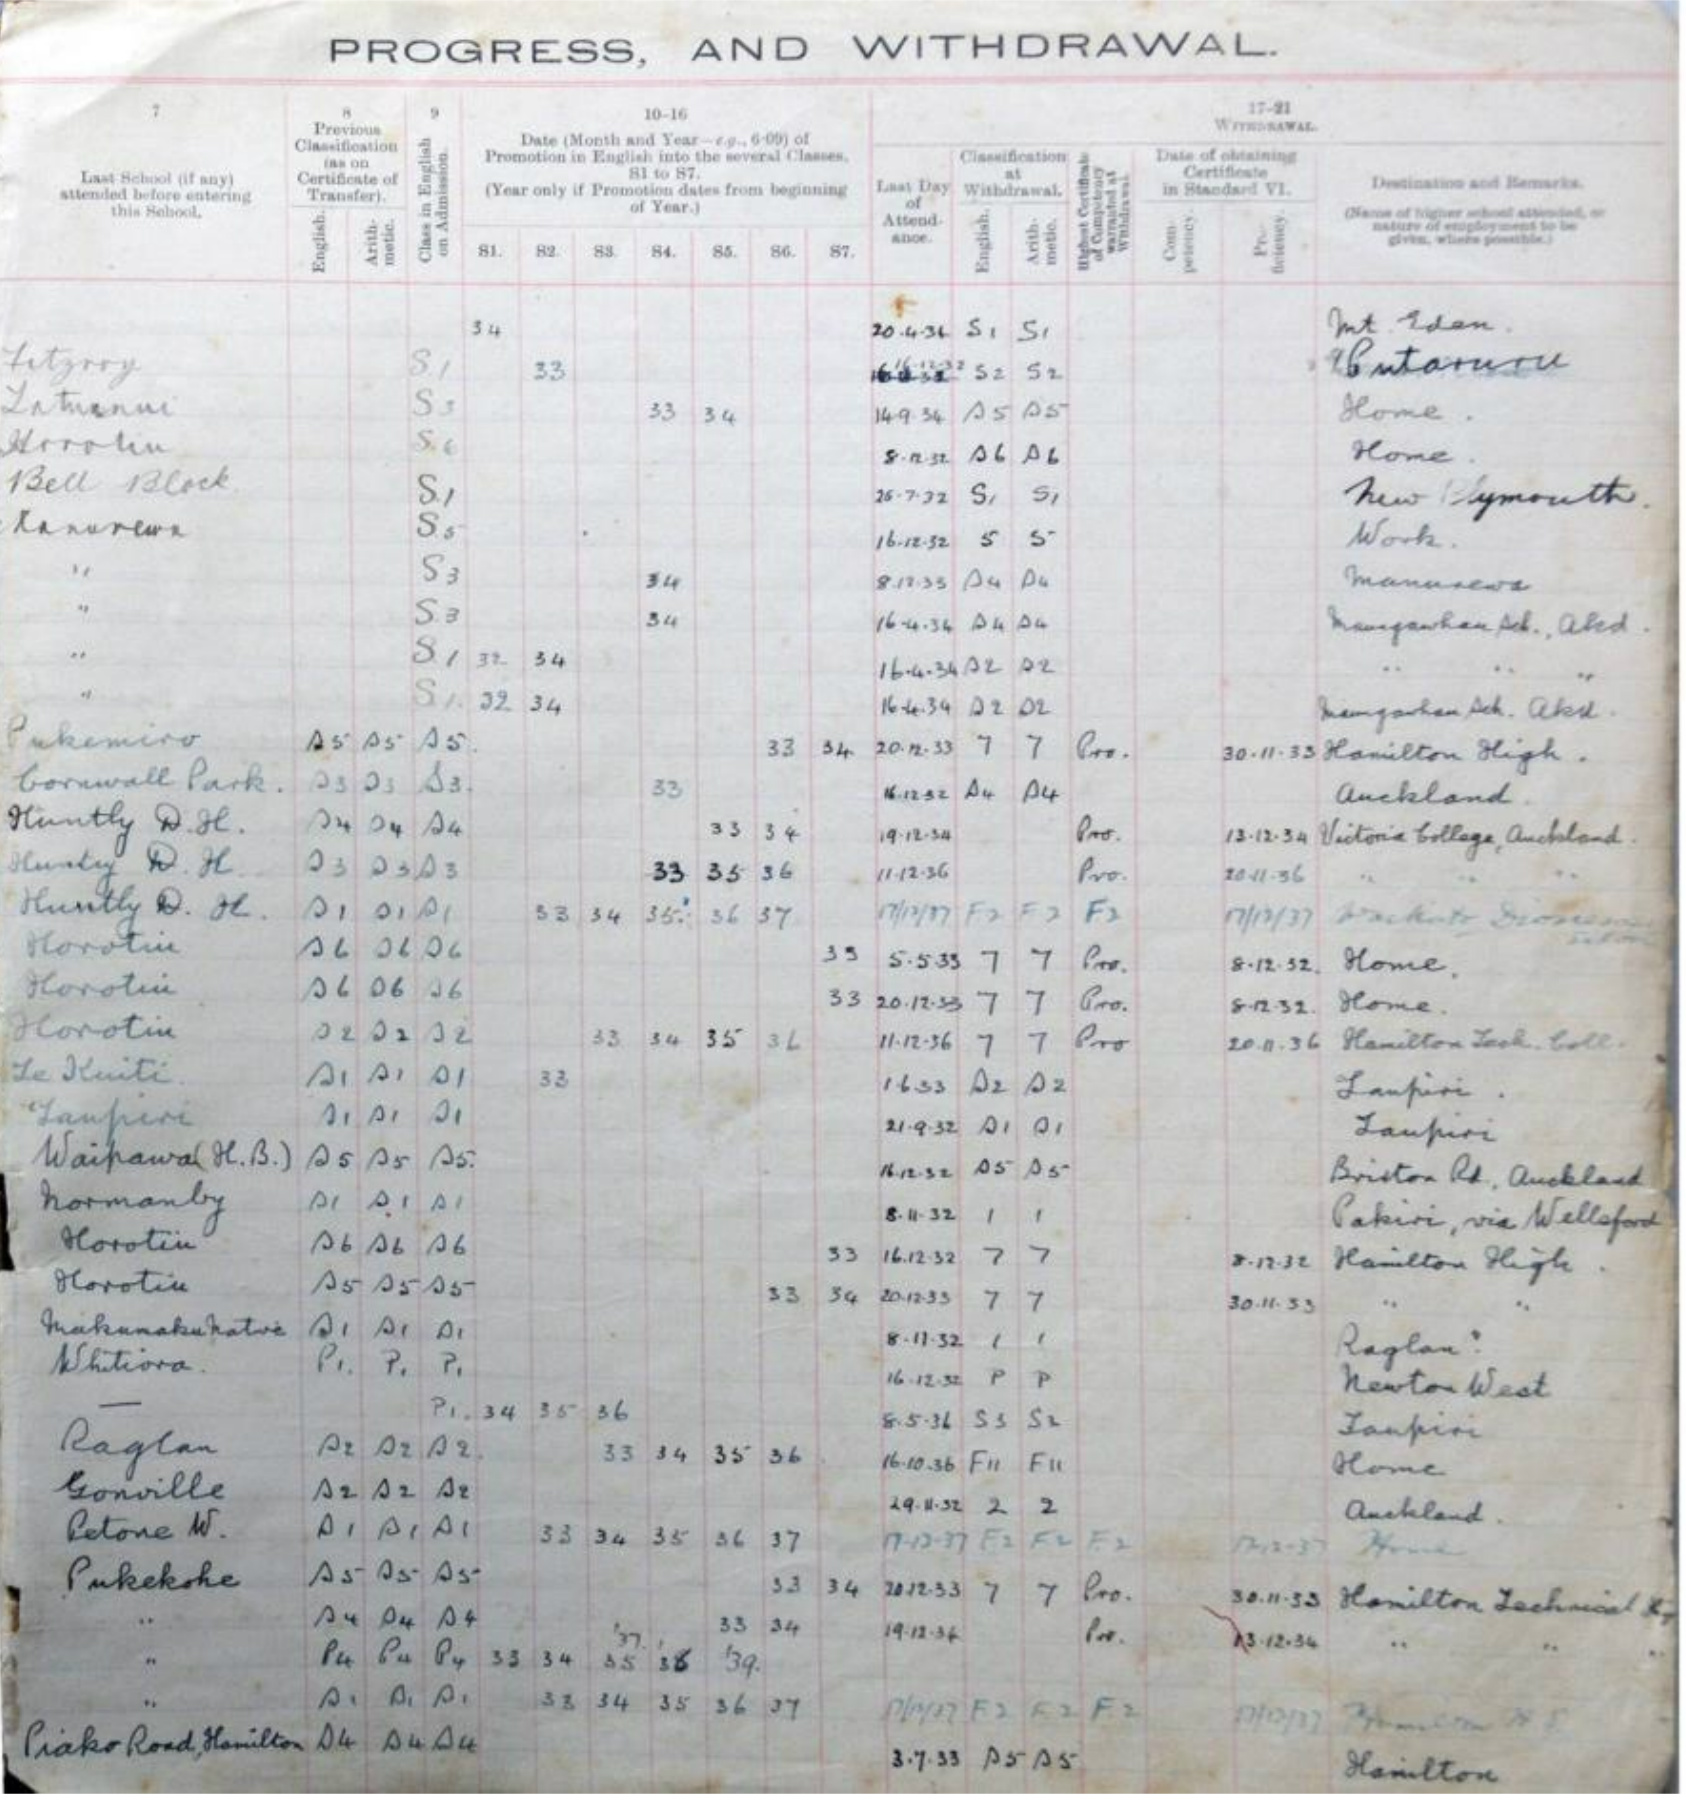 PROGRESS, AND WITHDRAWAL.
7 8 9 10-16 17-21
Last School (if any) attended before entering this School.
Previous Classification (as on Certificate of Transfer).
English. Arithmetic.
Class in English on Admission.
Date (Month and Year—e.g., 6-09) of Promotion in English into the several Classes, S1 to S7.
(Year only if Promotion dates from beginning of Year.)
S1. S2. S3. S4. S5. S6. S7.
WITHDRAWAL.
Last Day of Attendance.
Classification at Withdrawal.
English. Arithmetic.
Highest Certificate of Competency warranted at Withdrawal.
Date of obtaining Certificate in Standard VI.
Competency. Proficiency.
Destination and Remarks.
(Name of higher school attended, or nature of employment to be given, where possible.)
34 S1 S1 Mt. Eden.
Fitzroy S.1 33 S2 S2 Putaruru
S3 33 34 14.9.34 S5 S5 Home.
Horotiu S.6 8.12.32 S6 S6 Home.
Bell Block S.1 S1 S1 New Plymouth.
S.5 16.12.32 5 5 Work.
" S3 34 8.12.33 S4 S4 Manurewa
" S.3 34 16.4.34 S4 S4 Sch., Akd.
" S.1 32 34 16.4.34 S2 S2 " " "
" S.1. 32 34 16.4.34 S2 S2 Sch. Akd.
Pukemiro S5 S5 S5. 33 34 20.12.33 7 7 Pro. 30.11.33 Hamilton High.
Cornwall Park. S3 S3 S3. 33 16.12.32 S4 S4 Auckland.
Huntly D.H. S4 S4 S4 33 34 19.12.34 Pro. 13.12.34 Victoria College, Auckland.
Huntly D.H. S3 S3 S3 33 35 36 11.12.36 Pro. 20.11.36 " " "
Huntly D.H. S1 S1 S1 33 34 35 36 37 17/12/37 F2 F2 F2 17/12/37
Horotiu S6 S6 S6 33 5.5.33 7 7 Pro. 8.12.32. Home.
Horotiu S6 S6 S6 33 20.12.33 7 7 Pro. 8.12.32. Home.
Horotiu S2 S2 S2 33 34 35 36 11.12.36 7 7 Pro 20.11.36 Hamilton Tech. Coll.
Te Kuiti. S1 S1 S1 33 1.6.33 S2 S2 Taupiri.
Taupiri S1 S1 S1 21.9.32 S1 S1 Taupiri
Waipawa (H.B.) S5 S5 S5. 16.12.32 S5 S5 Rd., Auckland
Normanby S1 S1 S1 8.11.32 1 1 Pakiri, via Wellsford
Horotiu S6 S6 S6 33 16.12.32 7 7 8.12.32 Hamilton High.
Horotiu S5 S5 S5 33 34 20.12.33 7 7 30.11.33 " "
Native S1 S1 S1 8.11.32 1 1 Raglan
Whitiora. P1. P1 P1 16.12.32 P P Newton West
— P1. 34 35 36 8.5.36 S3 S2 Taupiri
Raglan S2 S2 S2. 33 34 35 36 16.10.36 F11 F11 Home
Gonville S2 S2 S2 29.11.32 2 2 Auckland.
Petone W. S1 S1 S1 33 34 35 36 37 17.12.37 F2 F2 F2 Home
Pukekohe S5 S5 S5 33 34 20.12.33 7 7 Pro. 30.11.33 Hamilton Technical
" S4 S4 S4 33 34 19.12.34 Pro. 13.12.34 " " "
" P4 P4 P4 33 34 35 '37. '39.
" S1 S1 S1 33 34 35 36 37 17/12/37 F2 F2 F2 17/12/37 Hamilton
Piako Road, Hamilton S4 S4 S4 3.7.33 S5 S5 Hamilton